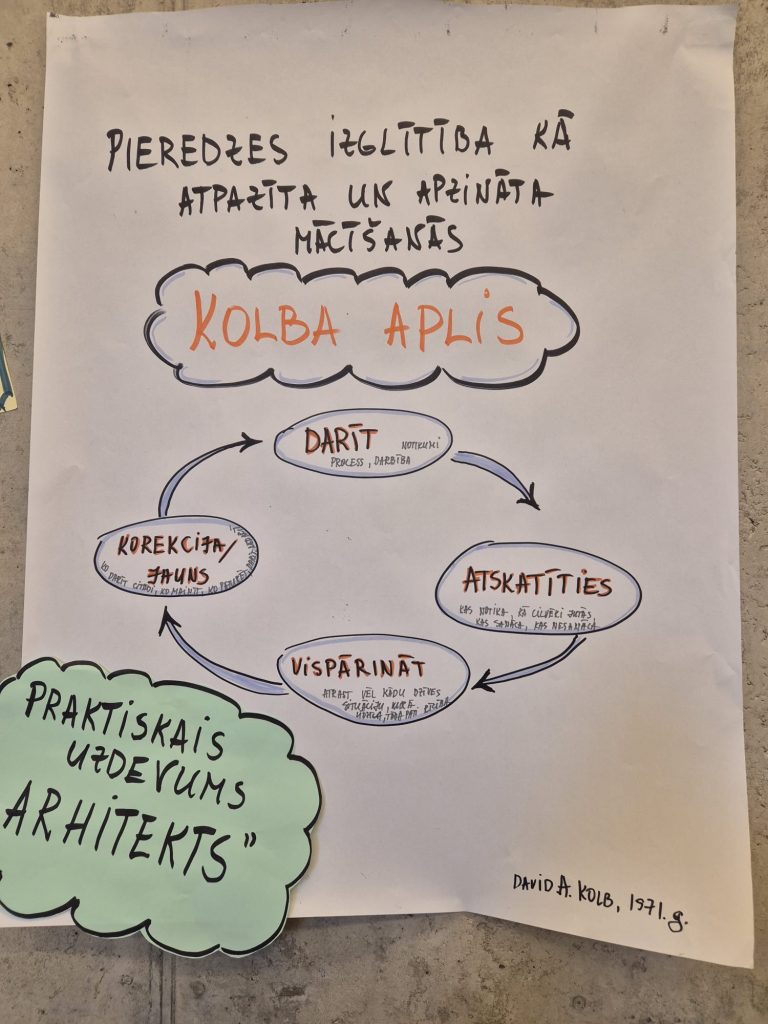 PIEREDZES IZGLĪTĪBA KĀ
ATPAZĪTA UN APZINĀTA
MĀCĪŠANĀS
KOLBA APLIS
DARĪT NOTIKUMI
PROCESS, DARBĪBA
ATSKATĪTIES
KAS NOTIKA, KĀ CILVĒKI JUTĀS
KAS SANĀCA, KAS NESANĀCA
VISPĀRINĀT
ATRAST VĒL KĀDU DZĪVES
SITUĀCIJU, KURĀ
TĀDA PATI RĪCĪBA
KOREKCIJA/
JAUNS
KO DARĪT CITĀDI, KO MAINĪT, KO
PRAKTISKAIS
UZDEVUMS
ARHITEKTS”
DAVID A. KOLB, 1971. g.